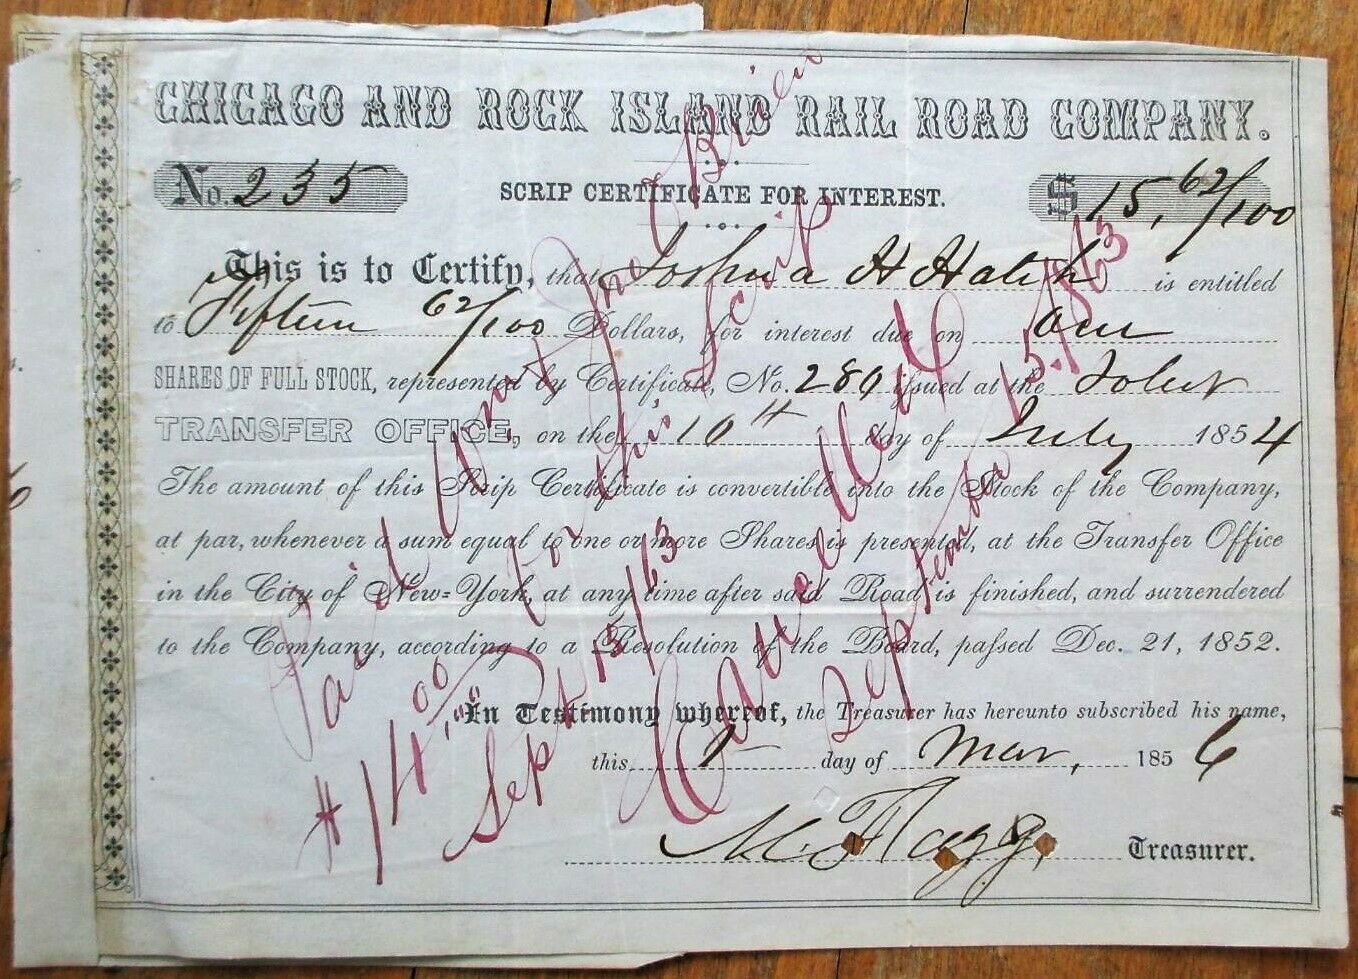 CHICAGO AND ROCK ISLAND RAIL ROAD COMPANY.
No. 235 SCRIP CERTIFICATE FOR INTEREST. $15,62/100
This is to Certify, that Joshua H Hatch is entitled
to Fifteen 62/100 Dollars, for interest due on one
SHARES OF FULL STOCK, represented by Certificate, No. 289 issued at the Joliet
TRANSFER OFFICE, on the 10th day of July 1854
The amount of this Scrip Certificate is convertible into the Stock of the Company,
at par, whenever a sum equal to one or more Shares is presented, at the Transfer Office
in the City of New=York, at any time after said Road is finished, and surrendered
to the Company, according to a Resolution of the Board, passed Dec. 21, 1852.
In Testimony whereof, the Treasurer has hereunto subscribed his name,
this 1 day of Mar, 1856
A. Flagg, Treasurer.
Paid Jno O Brien
$14.00 for this Scrip
Sept 15/63
Cancelled
September 15/1863